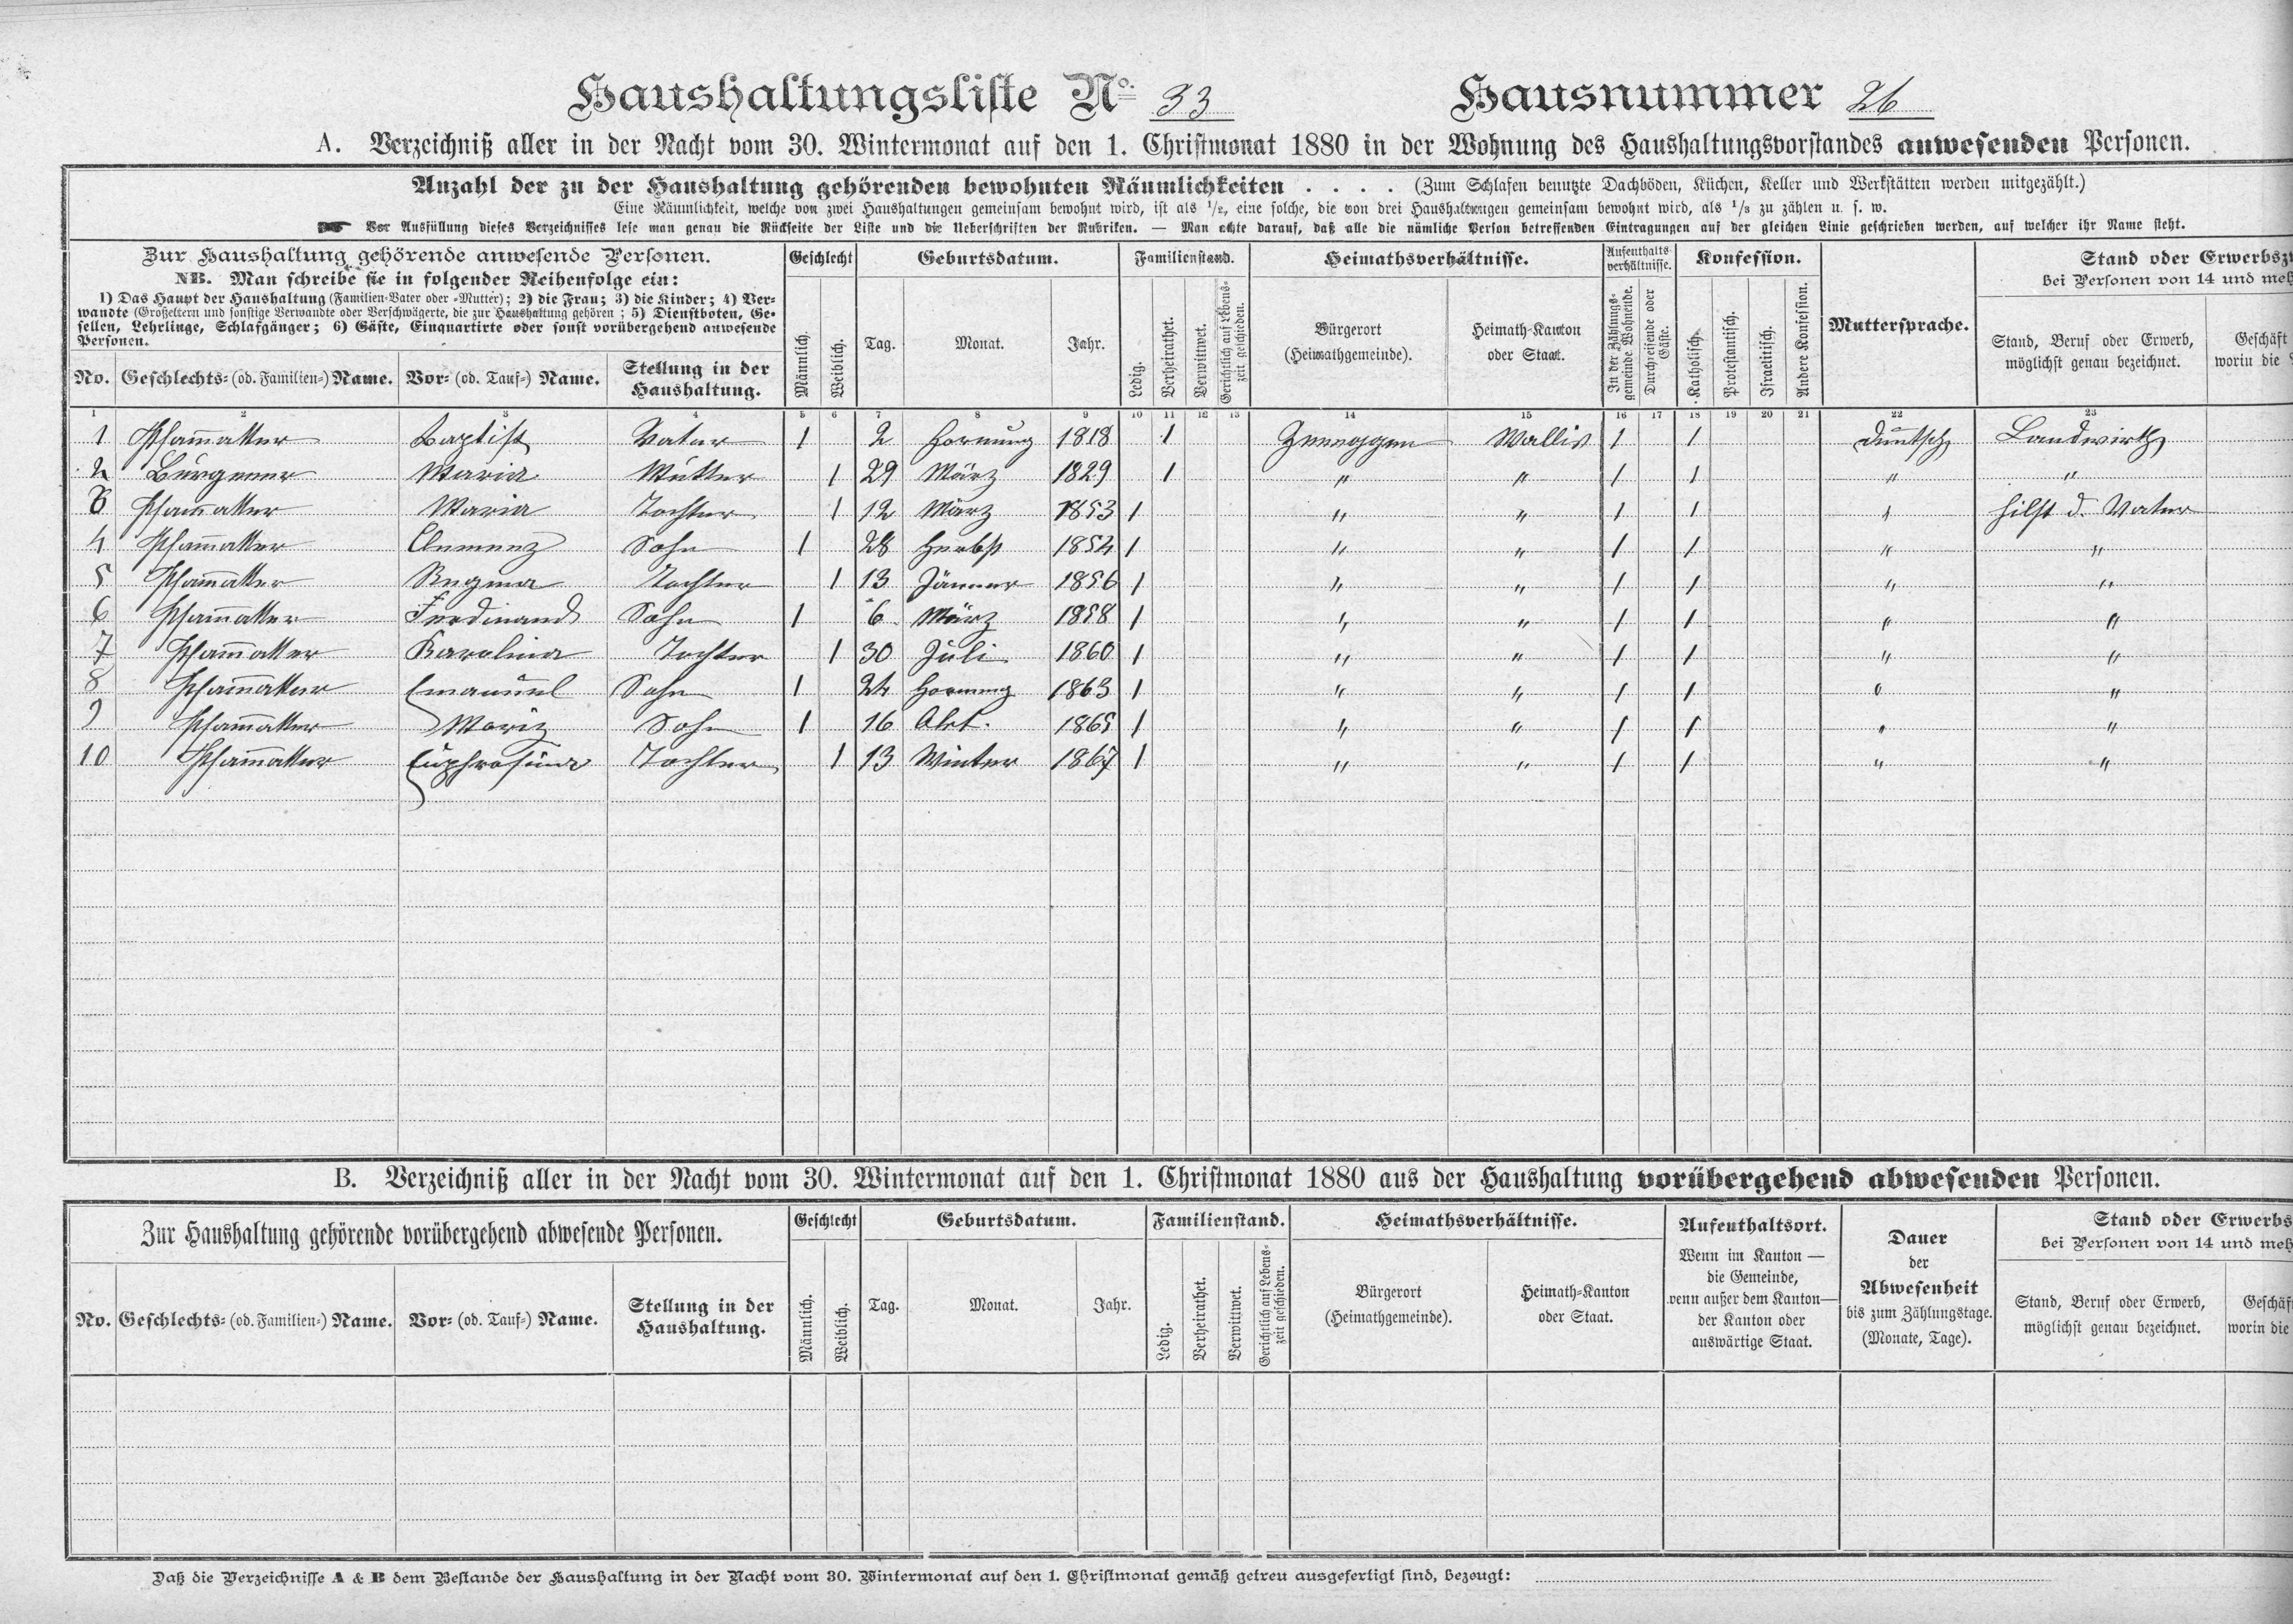 Haushaltungsliste No. 33 Hausnummer 26
A. Verzeichniß aller in der Nacht vom 30. Wintermonat auf den 1. Christmonat 1880 in der Wohnung des Haushaltungsvorstandes anwesenden Personen.
Anzahl der zu der Haushaltung gehörenden bewohnten Räumlichkeiten . . . . (Zum Schlafen benutzte Dachböden, Küchen, Keller und Werkstätten werden mitgezählt.)
Eine Räumlichkeit, welche von zwei Haushaltungen gemeinsam bewohnt wird, ist als 1/2, eine solche, die von drei Haushaltungen gemeinsam bewohnt wird, als 1/3 zu zählen u. s. w.
Vor Ausfüllung dieses Verzeichnisses lese man genau die Rückseite der Liste und die Ueberschriften der Rubriken. — Man achte darauf, daß alle die nämliche Person betreffenden Eintragungen auf der gleichen Linie geschrieben werden, auf welcher ihr Name steht.
Zur Haushaltung gehörende anwesende Personen.
NB. Man schreibe sie in folgender Reihenfolge ein:
1) Das Haupt der Haushaltung (Familien-Vater oder -Mutter); 2) die Frau; 3) die Kinder; 4) Ver-
wandte (Großeltern und sonstige Verwandte oder Verschwägerte, die zur Haushaltung gehören; 5) Dienstboten, Ge-
sellen, Lehrlinge, Schlafgänger; 6) Gäste, Einquartirte oder sonst vorübergehend anwesende
Personen.
No. Geschlechts- (od. Familien-) Name. Vor- (od. Tauf-) Name. Stellung in der Haushaltung.
Geschlecht
Männlich. Weiblich.
Geburtsdatum.
Tag. Monat. Jahr.
Familienstand.
Ledig. Verheirathet. Verwittwet. Gerichtlich auf Lebens-
zeit geschieden.
Heimathsverhältnisse.
Bürgerort
(Heimathgemeinde).
Heimath-Kanton
oder Staat.
Aufenthalts-
verhältnisse.
In der Zählungs-
gemeinde Wohnende.
Durchreisende oder
Gäste.
Konfession.
Katholisch. Protestantisch. Israelitisch. Andere Konfession.
Muttersprache.
Stand oder Erwerbsz
bei Personen von 14 und meh
Stand, Beruf oder Erwerb,
möglichst genau bezeichnet.
Geschäft
worin die
1 2 3 4 5 6 7 8 9 10 11 12 13 14 15 16 17 18 19 20 21 22 23
1 Pfam̄atter Baptist Vater 1 2 Hornung 1818 1 Zeneggen Wallis 1 1 deutsch Landwirth
2 Burgener Maria Mutter 1 29 März 1829 1 " " 1 1 " "
3 Pfam̄atter Maria Tochter 1 12 März 1853 1 " " 1 1 " hilft d. Vater
4 Pfam̄atter Clemenz Sohn 1 28 Herbst 1854 1 " " 1 1 " "
5 Pfam̄atter Regina Tochter 1 13 Jänner 1856 1 " " 1 1 " "
6 Pfam̄atter Ferdinand Sohn 1 6 März 1858 1 " " 1 1 " "
7 Pfam̄atter Karolina Tochter 1 30 Juli 1860 1 " " 1 1 " "
8 Pfam̄atter Emanuel Sohn 1 24 Hornung 1863 1 " " 1 1 " "
9 Pfam̄atter Moriz Sohn 1 16 Okt. 1865 1 " " 1 1 " "
10 Pfam̄atter Euphrosina Tochter 1 13 Winter 1867 1 " " 1 1 " "
B. Verzeichniß aller in der Nacht vom 30. Wintermonat auf den 1. Christmonat 1880 aus der Haushaltung vorübergehend abwesenden Personen.
Zur Haushaltung gehörende vorübergehend abwesende Personen.
No. Geschlechts- (od. Familien-) Name. Vor- (od. Tauf-) Name. Stellung in der Haushaltung.
Geschlecht
Männlich. Weiblich.
Geburtsdatum.
Tag. Monat. Jahr.
Familienstand.
Ledig. Verheirathet. Verwittwet. Gerichtlich auf Lebens-
zeit geschieden.
Heimathsverhältnisse.
Bürgerort
(Heimathgemeinde).
Heimath-Kanton
oder Staat.
Aufenthaltsort.
Wenn im Kanton —
die Gemeinde,
wenn außer dem Kanton—
der Kanton oder
auswärtige Staat.
Dauer
der
Abwesenheit
bis zum Zählungstage.
(Monate, Tage).
Stand oder Erwerbs
bei Personen von 14 und meh
Stand, Beruf oder Erwerb,
möglichst genau bezeichnet.
Geschäf
worin die
Daß die Verzeichnisse A & B dem Bestande der Haushaltung in der Nacht vom 30. Wintermonat auf den 1. Christmonat gemäß getreu ausgefertigt sind, bezeugt: